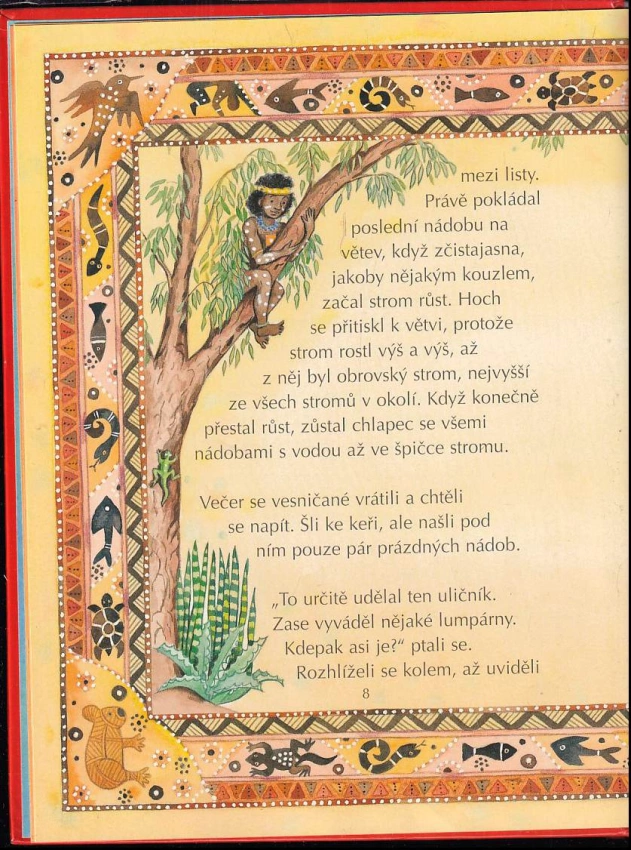 mezi listy.
Právě pokládal
poslední nádobu na
větev, když zčistajasna,
jakoby nějakým kouzlem,
začal strom růst. Hoch
se přitiskl k větvi, protože
strom rostl výš a výš, až
z něj byl obrovský strom, nejvyšší
ze všech stromů v okolí. Když konečně
přestal růst, zůstal chlapec se všemi
nádobami s vodou až ve špičce stromu.
Večer se vesničané vrátili a chtěli
se napít. Šli ke keři, ale našli pod
ním pouze pár prázdných nádob.
„To určitě udělal ten uličník.
Zase vyváděl nějaké lumpárny.
Kdepak asi je?“ ptali se.
Rozhlíželi se kolem, až uviděli
8